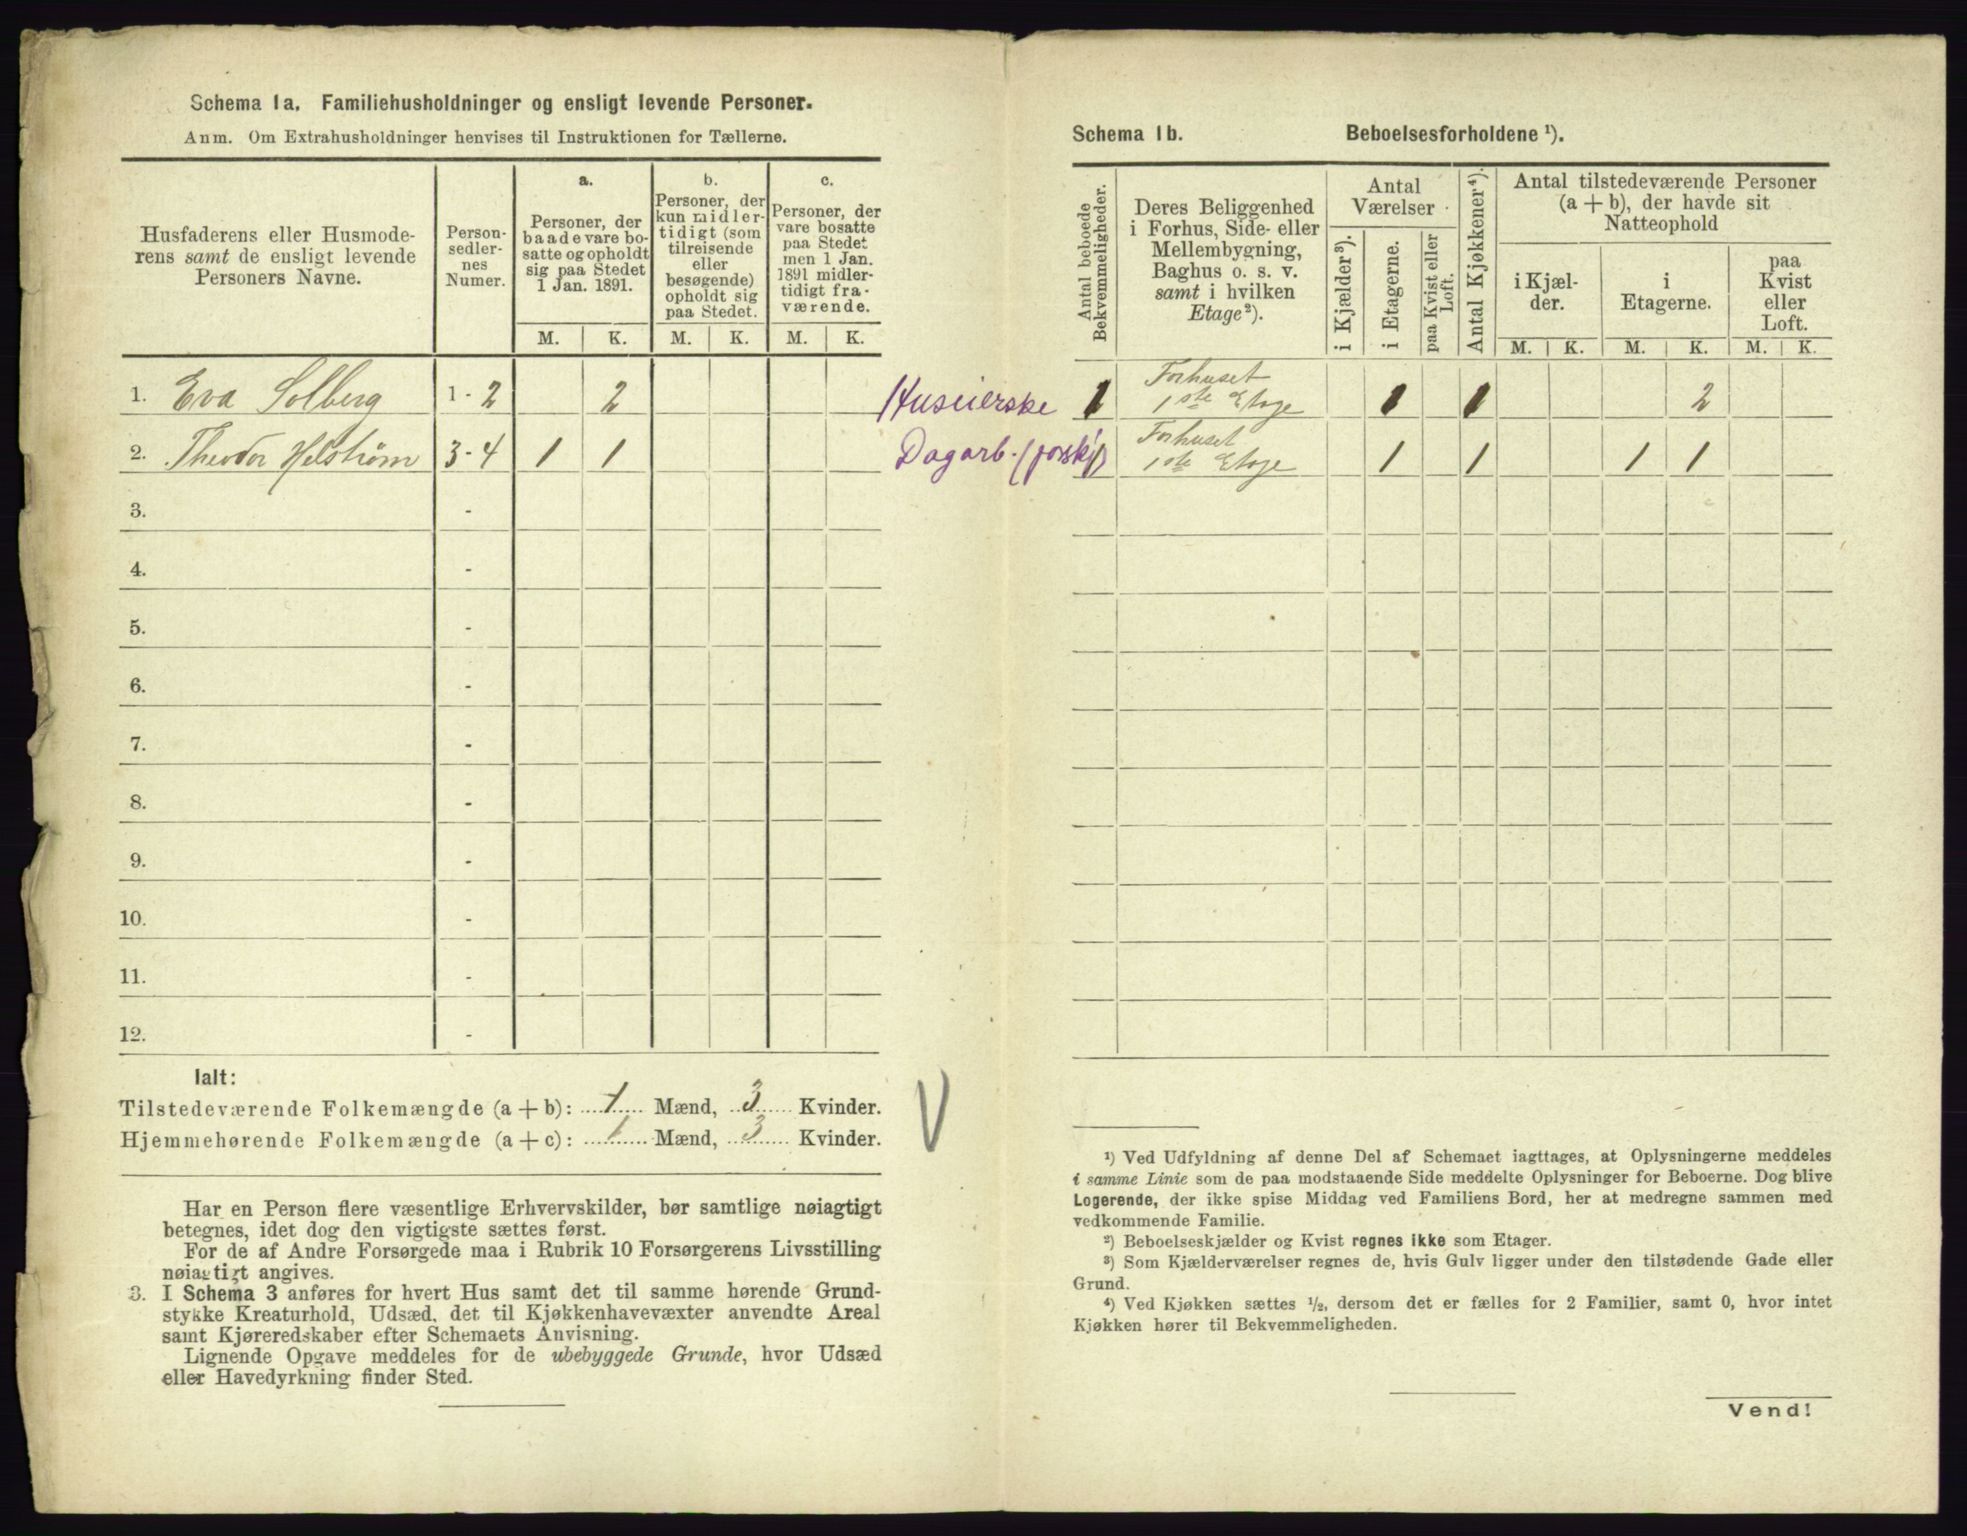 Schema 1a. Familiehusholdninger og ensligt levende Personer.
Anm. Om Extrahusholdninger henvises til Instruktionen for Tællerne.
Husfaderens eller Husmode-
rens samt de ensligt levende
Personers Navne.
Person-
sedler-
nes
Numer.
a.
Personer, der
baade vare bo-
satte og opholdt
sig paa Stedet
1 Jan. 1891.
M. K.
b.
Personer, der
kun midler-
tidigt (som
tilreisende
eller
besøgende)
opholdt sig
paa Stedet.
M. K.
c.
Personer, der
vare bosatte
paa Stedet
men 1 Jan.
1891 midler-
tidigt fra-
værende.
M. K.
1. Eva Solberg 1 - 2 2
2. Theodor Helstrøm 3 - 4 1 1
3. -
4. -
5. -
6. -
7. -
8. -
9. -
10. -
11. -
12. -
Ialt:
Tilstedeværende Folkemængde (a + b): 1 Mænd, 3 Kvinder.
Hjemmehørende Folkemængde (a + c): 1 Mænd, 3 Kvinder.
Har en Person flere væsentlige Erhvervskilder, bør samtlige nøiagtigt
betegnes, idet dog den vigtigste sættes først.
For de af Andre Forsørgede maa i Rubrik 10 Forsørgerens Livsstilling
nøiagtigt angives.
3. I Schema 3 anføres for hvert Hus samt det til samme hørende Grund-
stykke Kreaturhold, Udsæd, det til Kjøkkenhavevæxter anvendte Areal
samt Kjøreredskaber efter Schemaets Anvisning.
Lignende Opgave meddeles for de ubebyggede Grunde, hvor Udsæd
eller Havedyrkning finder Sted.
Schema 1b. Beboelsesforholdene ¹).
Antal beboede
Bekvemmeligheder.
Deres Beliggenhed
i Forhus, Side- eller
Mellembygning,
Baghus o. s. v.
samt i hvilken
Etage²).
Antal
Værelser
i Kjælder³).
i Etagerne.
paa Kvist eller
Loft.
Antal Kjøkkener⁴).
Antal tilstedeværende Personer
(a + b), der havde sit
Natteophold
i Kjæl-
der.
i
Etagerne.
paa
Kvist
eller
Loft.
M. K. M. K. M. K.
Forhuset
Huseierske 1 1ste Etage 1 1 2
Forhuset
Dagarb. 1 1ste Etage 1 1 1 1
¹) Ved Udfyldning af denne Del af Schemaet iagttages, at Oplysningerne meddeles
i samme Linie som de paa modstaaende Side meddelte Oplysninger for Beboerne. Dog blive
Logerende, der ikke spise Middag ved Familiens Bord, her at medregne sammen med
vedkommende Familie.
²) Beboelseskjælder og Kvist regnes ikke som Etager.
³) Som Kjælderværelser regnes de, hvis Gulv ligger under den tilstødende Gade eller
Grund.
⁴) Ved Kjøkken sættes ½, dersom det er fælles for 2 Familier, samt 0, hvor intet
Kjøkken hører til Bekvemmeligheden.
Vend!